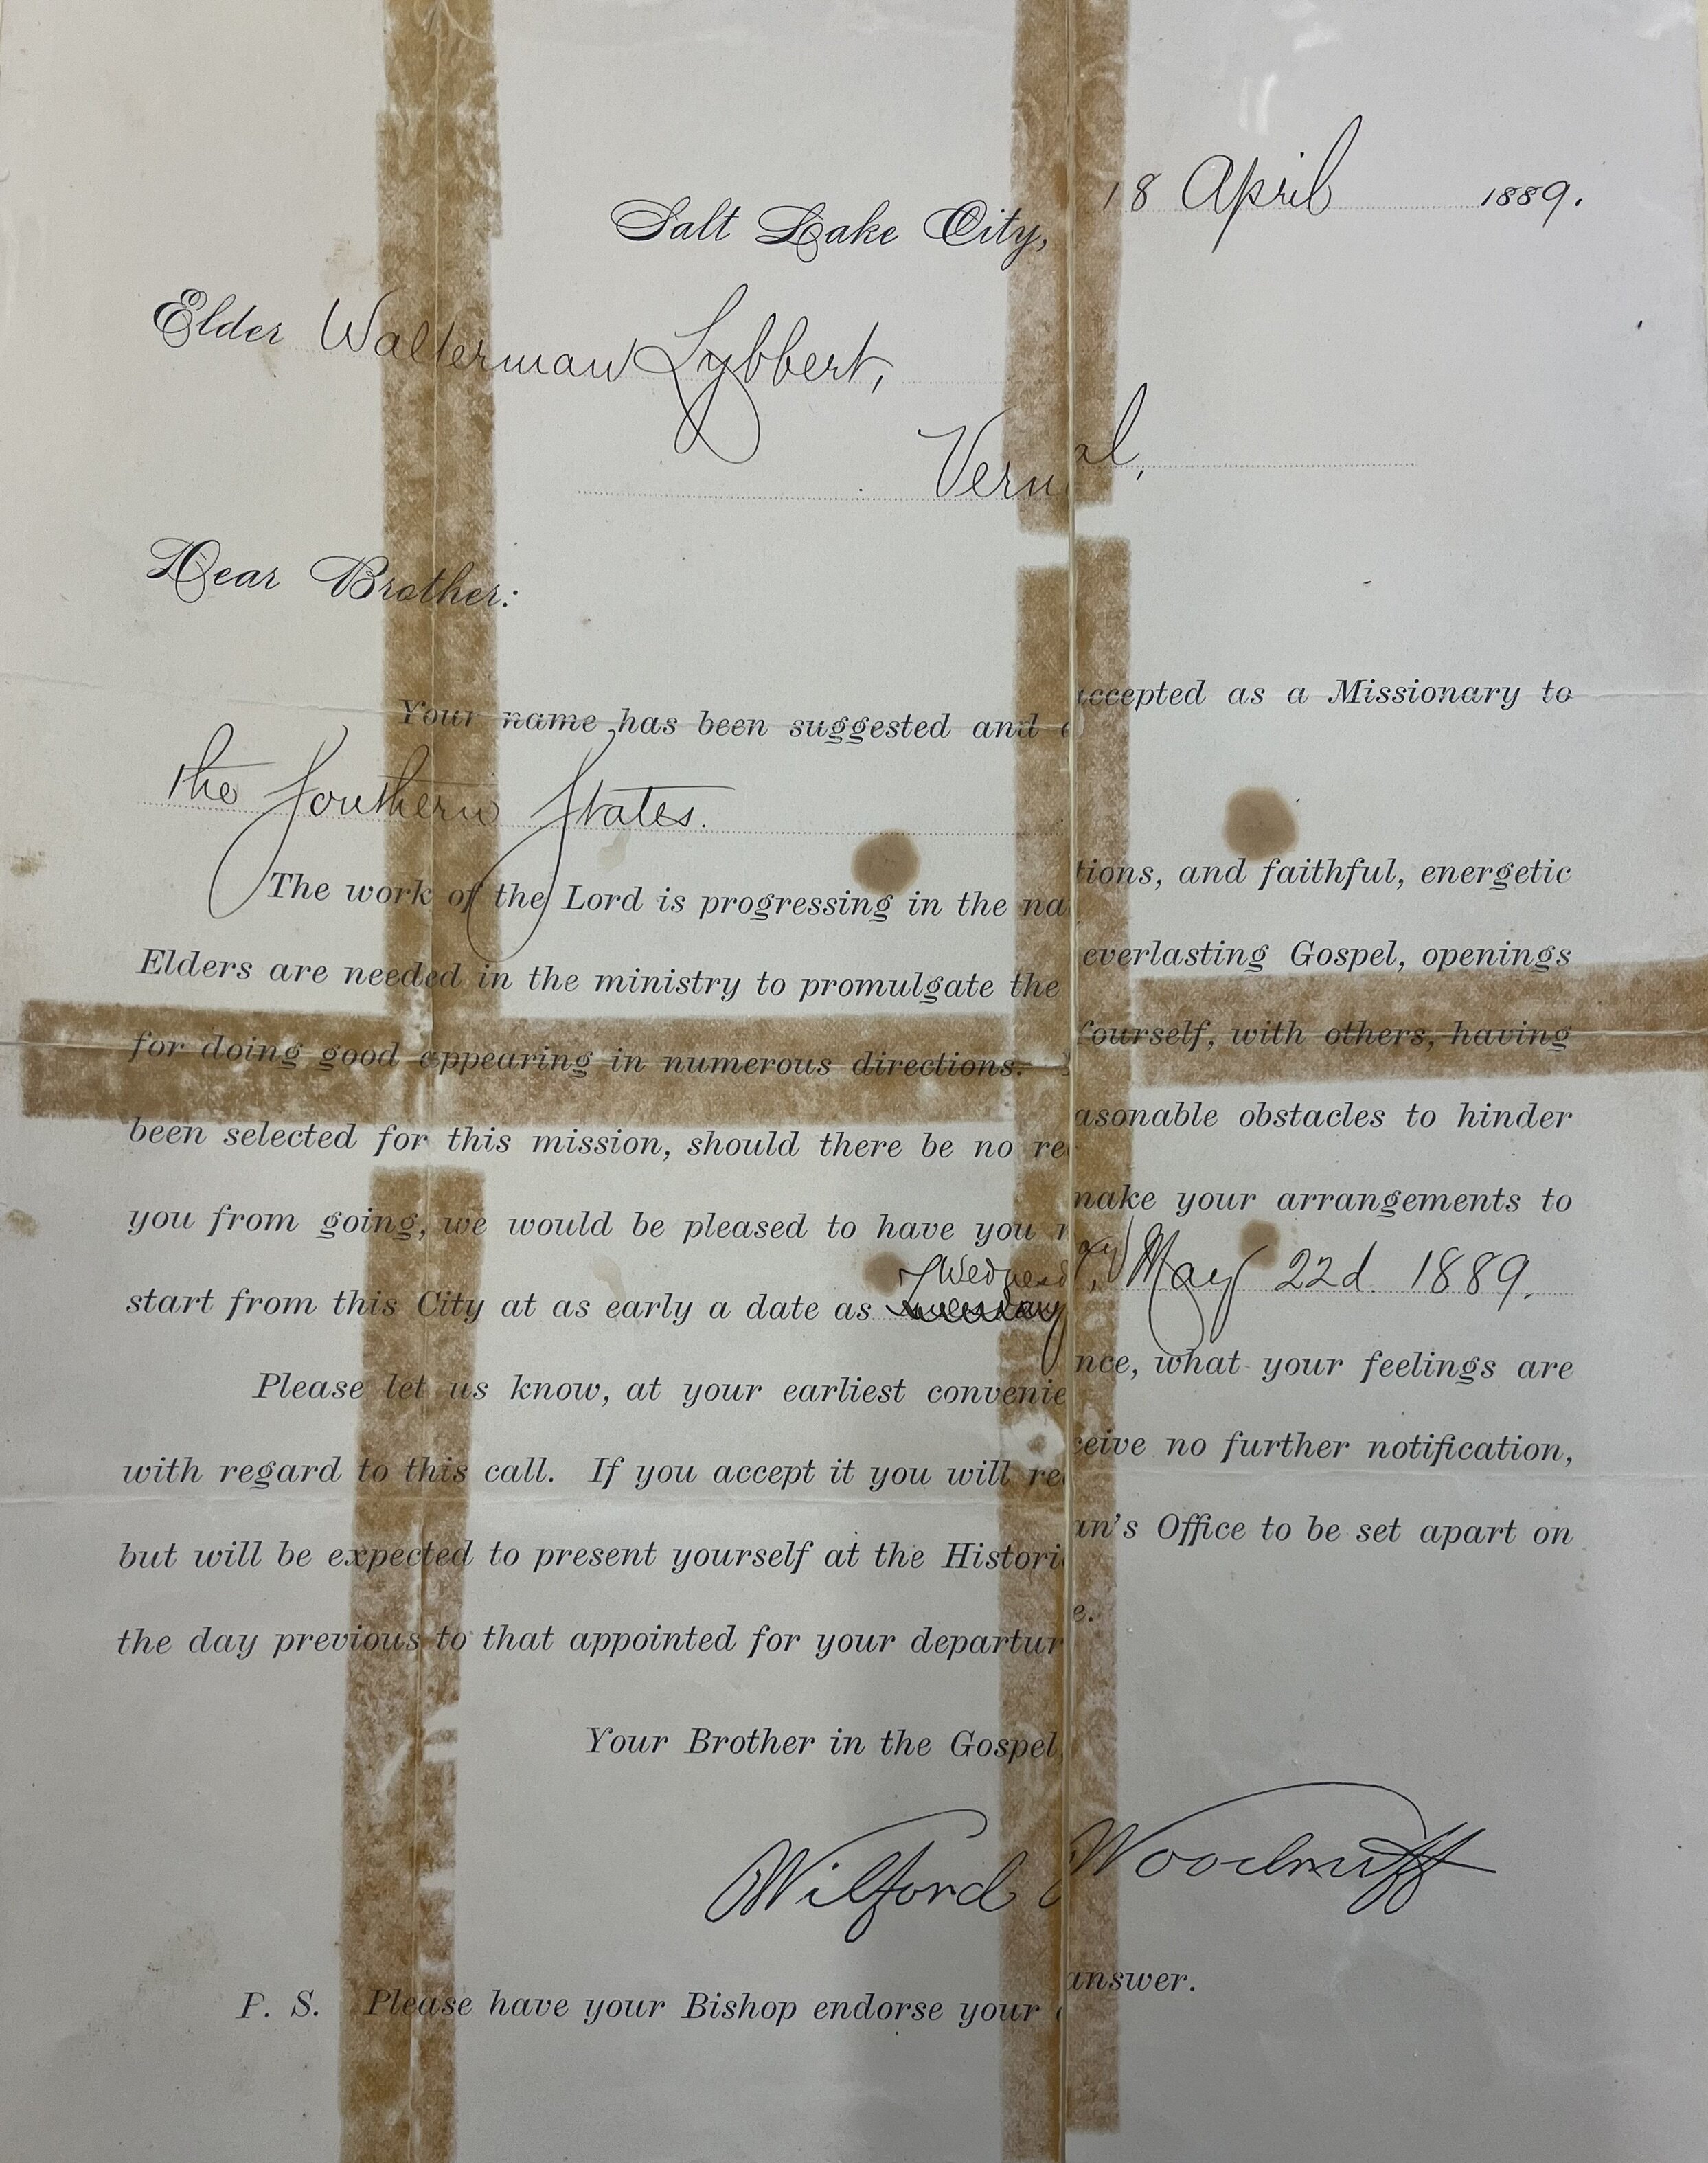 Salt Lake City, 18 April 1889.
Elder Walterman Lybbert,
Vernal,
Dear Brother:
Your name has been suggested and accepted as a Missionary to
the Southern States.
The work of the Lord is progressing in the nations, and faithful, energetic
Elders are needed in the ministry to promulgate the everlasting Gospel, openings
for doing good appearing in numerous directions. Yourself, with others, having
been selected for this mission, should there be no reasonable obstacles to hinder
you from going, we would be pleased to have you make your arrangements to
start from this City at as early a date as Wednesday, May 22d. 1889.
Please let us know, at your earliest convenience, what your feelings are
with regard to this call. If you accept it you will receive no further notification,
but will be expected to present yourself at the Historian's Office to be set apart on
the day previous to that appointed for your departure.
Your Brother in the Gospel,
Wilford Woodruff
P. S. Please have your Bishop endorse your answer.